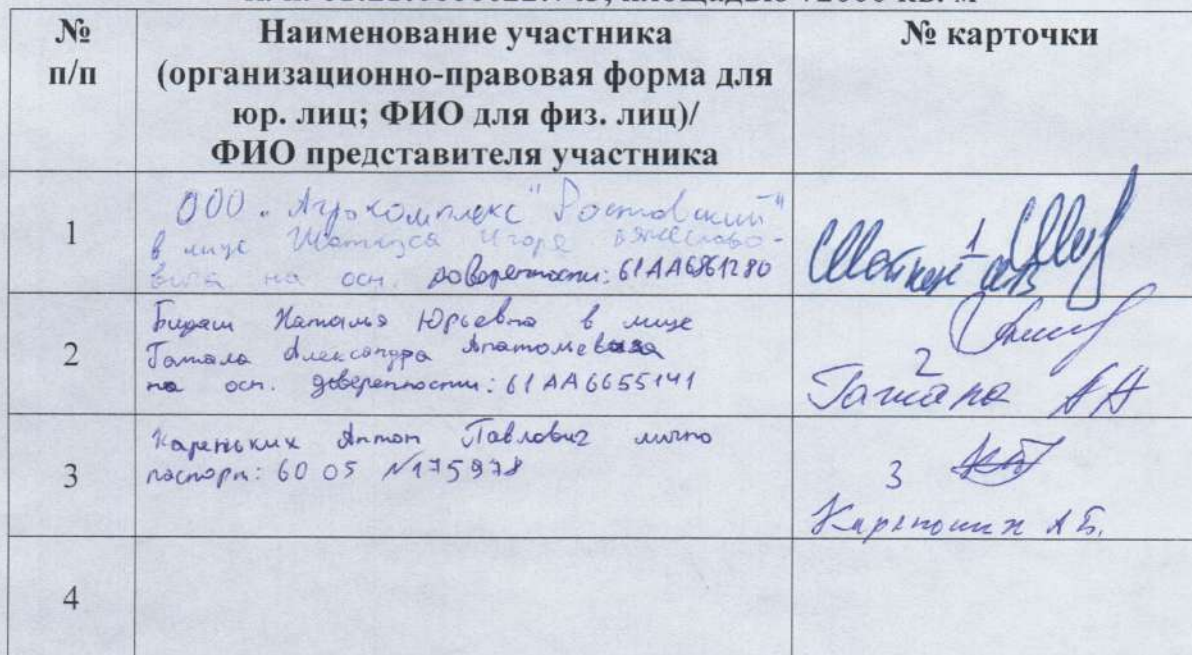 № п/п
Наименование участника
(организационно-правовая форма для
юр. лиц; ФИО для физ. лиц)/
ФИО представителя участника
№ карточки
1
ООО "Агрокомплекс "Ростовский"
в лице Игоря Вячеславо-
вича на осн. доверенности: 61АА6861280
1
2
Бидаш Наталья Юрьевна в лице
Александра Анатольевича
на осн. доверенности: 61АА6655141
2
АА
3
Антон Павлович лично
паспорт: 60 05 №175978
3
4